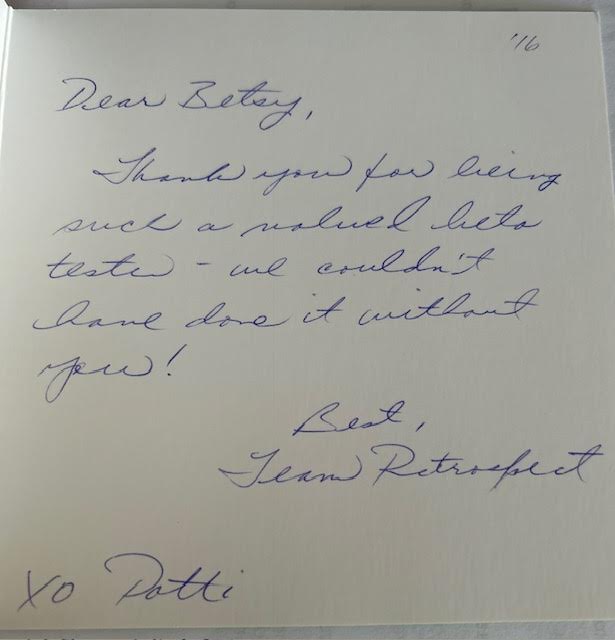 '16
Dear Betsy,
Thank you for being
such a valued beta
tester - we couldn't
have done it without
you!
Best,
Team Retrospect
XO Patti